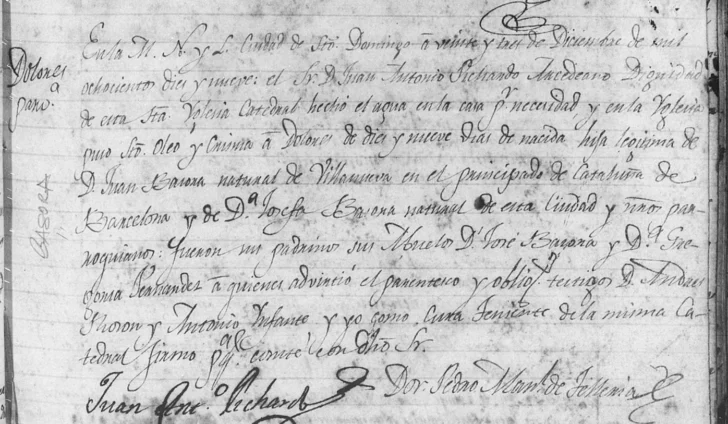 Dolores
parv.ª
BAZORA
En la M. N. y L. Ciudad de Sto. Domingo à veinte y tres de Diciembre de mil
ochocientos diez y nueve: el Sr. D. Juan Antonio Pichardo Arcedeano Dignidad
de esta Sta. Yglecia Catedral hechó el agua en la casa pr. necesidad y en la Yglecia
puso Sto. Oleo y Crisma à Dolores de diez y nueve dias de nacida hija legitima de
D. Juan Bazora natural de Villanueva en el principado de Cataluña de
Barcelona y de D.ª Josefa Bazora natural de esta Ciudad y nros. par-
roquianos: fueron sus padrinos sus Abuelos D. José Bazora y D.ª Gre-
goria Fernandez à quienes advirtió el parentesco y obligs. testigos D. Andres
y Antonio Infante y yo como Cura Teniente de la misma Ca-
tedral firmo pª. qe. conste con dho. Sr.
Juan Anto. Pichardo
Dor. Pedro Manl. de